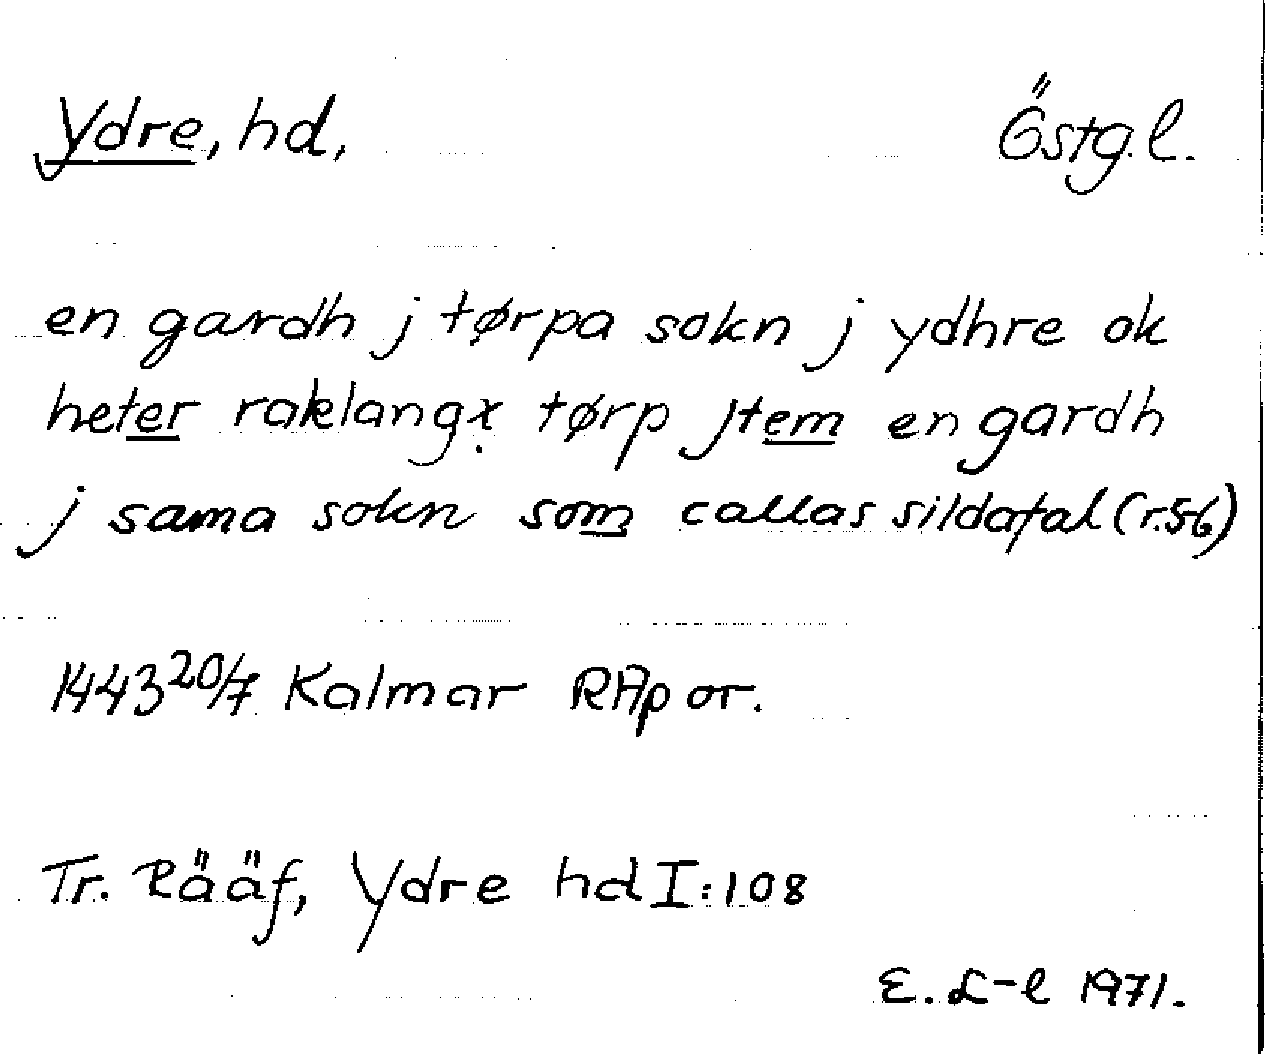 Ydre, hd, Östg.l.
en gardh j tørpa sokn j ydhre ok
heter raklangx tørp jtem en gardh
j sama sokn som callas sildafal (r.56)
1443 20/7 Kalmar RAp or.
Tr. Rääf, Ydre hd I:108
E. L-l 1971.